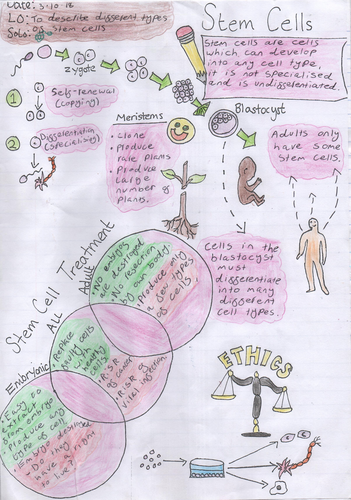 Date: 5-10-18
LO: To describe different types
of stem cells
Solo:
Stem Cells
Stem cells are cells
which can develop
into any cell type,
it is not specialised
and is undifferentiated.
zygote
1
Self-renewal
(copying)
2
Differentiation
(specialising)
Meristems
• Clone
• Produce
rare plants
• Produce
large
number of
plants.
Blastocyst
Adults only
have some
Stem Cells.
Cells in the
blastocyst
must
differentiate
into many
different
cell types.
Stem Cell Treatment
Adult
No embryos
are destroyed
No rejection
by own body.
Produce only
a few types
of cells
All
Replace
faulty cells
with
healthy
cells
Risk
of cancer
Risk of
viral infection
Embryonic
Easy to
extract from
embryo
Produce any
type of cell
Embryo destroyed
Do they
have a right
to live?
ETHICS